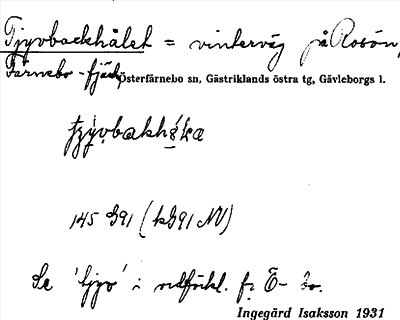 Tjyvbackhålet = vinterväg på Rosön,
Färnebo-fjärd, Österfärnebo sn, Gästriklands östra tg, Gävleborgs l.
145 G91 (kG91 NV)
Se 'tjyv' i
Ingegärd Isaksson 1931